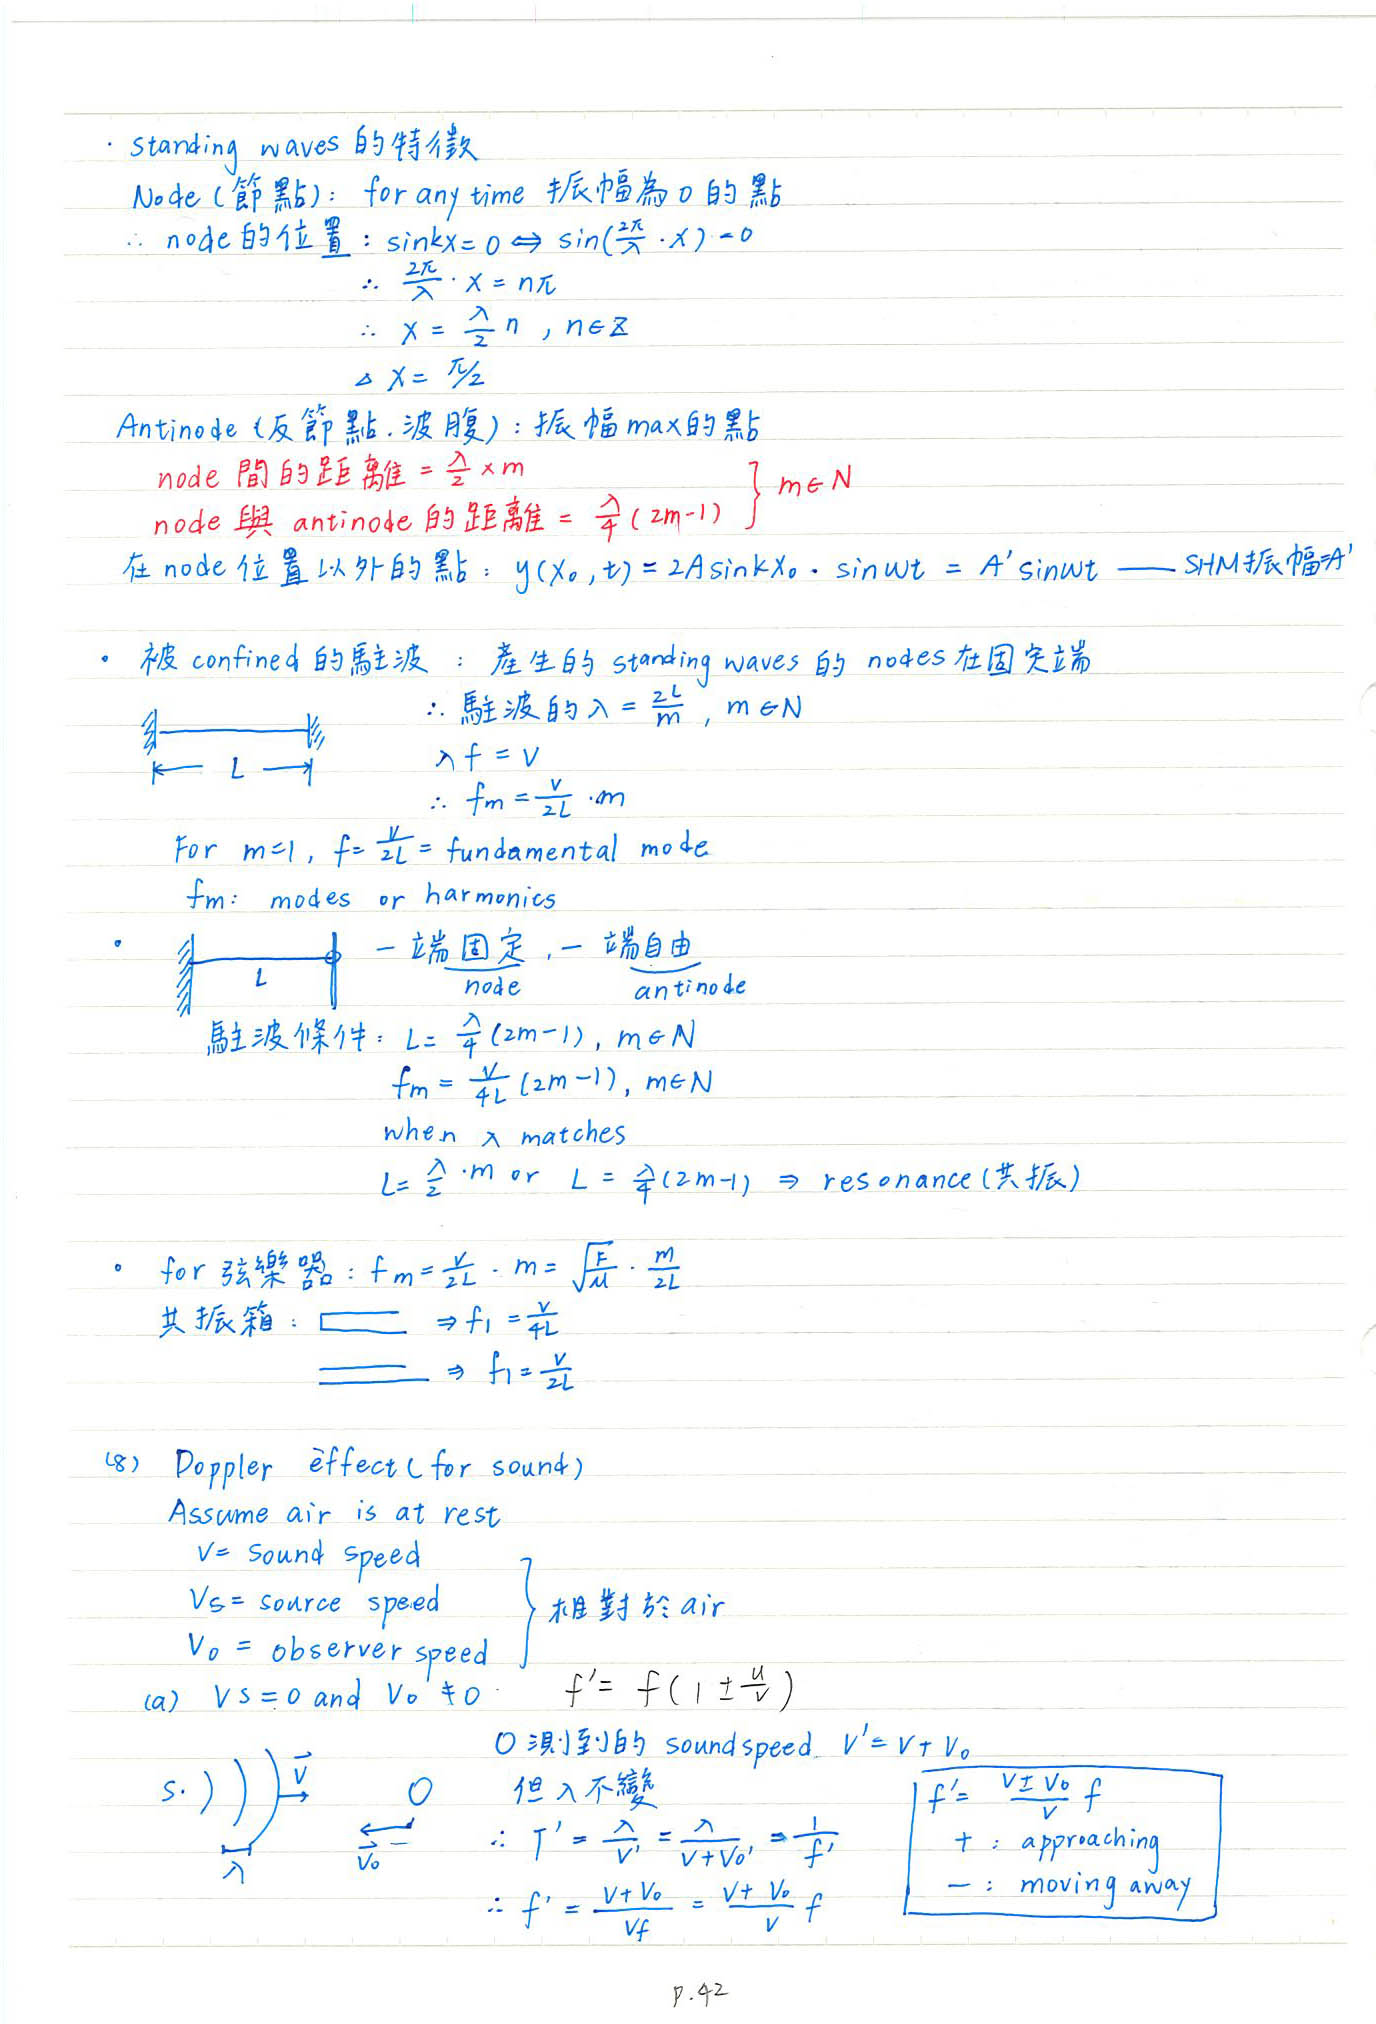 · standing waves 的特徵
Node (節點): for any time 振幅為 0 的點
∴ node 的位置 : sinkx = 0 ⇔ sin(2π/λ · x) = 0
∴ 2π/λ · x = nπ
∴ x = λ/2 n , n∈Z
△ x = π/2
Antinode (反節點. 波腹) : 振幅 max 的點
node 間的距離 = λ/2 × m
node 與 antinode 的距離 = λ/4 (2m-1) } m∈N
在 node 位置以外的點 : y(x₀, t) = 2A sinkx₀ · sinωt = A' sinωt —— SHM 振幅=A'
· 被 confined 的駐波 : 產生的 standing waves 的 nodes 在固定端
∴ 駐波的 λ = 2L/m , m∈N
L
λ f = v
∴ fm = v/2L · m
For m=1, f = v/2L = fundamental mode
fm: modes or harmonics
· 一端固定 , 一端自由
L node antinode
駐波條件 : L = λ/4 (2m-1), m∈N
fm = v/4L (2m-1), m∈N
when λ matches
L = λ/2 · m or L = λ/4 (2m-1) ⇒ resonance (共振)
· for 弦樂器 : fm = v/2L · m = √(F/μ) · m/2L
共振箱 : ⇒ f₁ = v/4L
⇒ f₁ = v/2L
(8) Doppler effect (for sound)
Assume air is at rest
V = sound speed
Vs = source speed } 相對於 air
Vo = observer speed
(a) Vs = 0 and Vo ≠ 0 f' = f(1 ± u/v)
O 測到的 sound speed V' = V + Vo
S. V O 但 λ 不變
λ Vo ∴ T' = λ/V' = λ/(V+Vo) = 1/f'
∴ f' = (V+Vo)/(V/f) = (V+Vo)/V f
f' = (V±Vo)/V f
+ : approaching
− : moving away
P.42